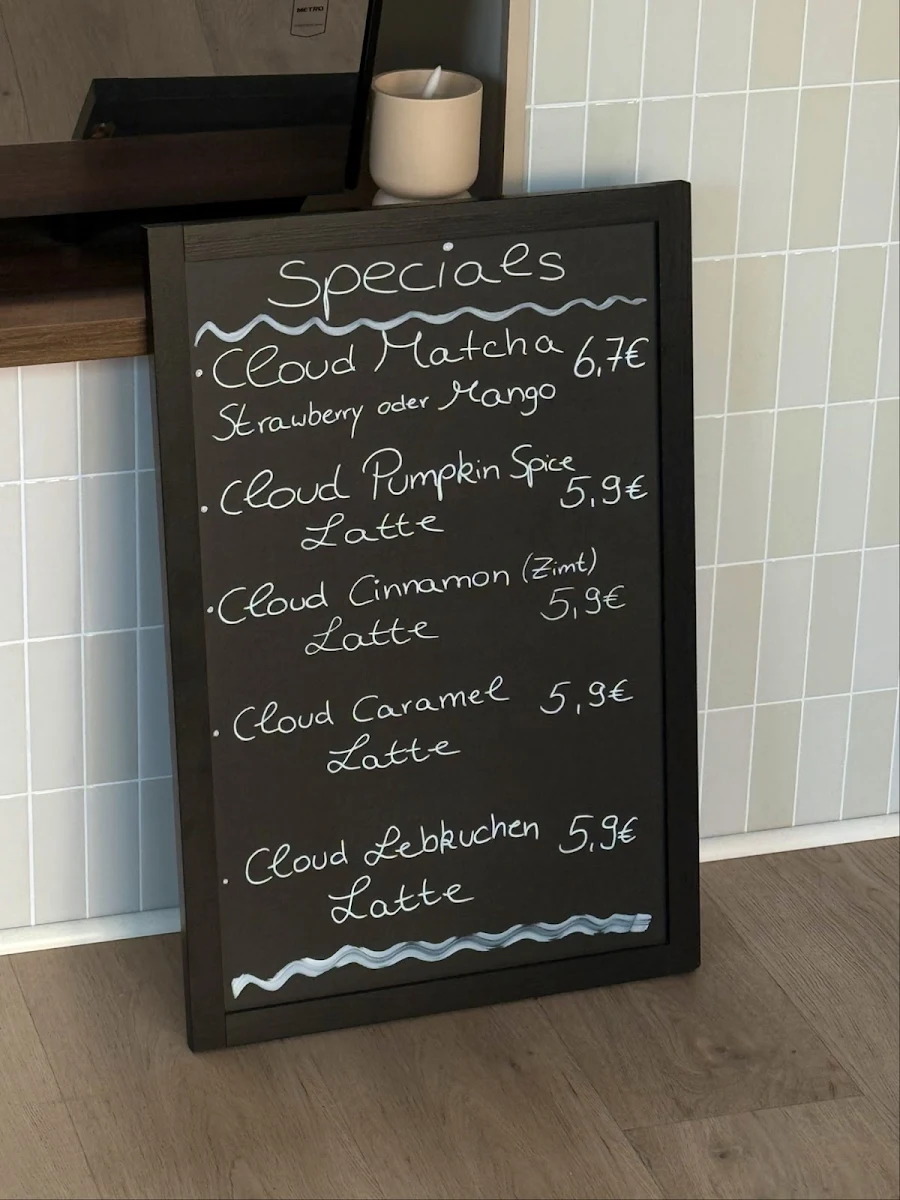 METRO
Specials
· Cloud Matcha 6,7€
Strawberry oder Mango
· Cloud Pumpkin Spice
Latte 5,9€
· Cloud Cinnamon (Zimt)
Latte 5,9€
· Cloud Caramel 5,9€
Latte
· Cloud Lebkuchen 5,9€
Latte